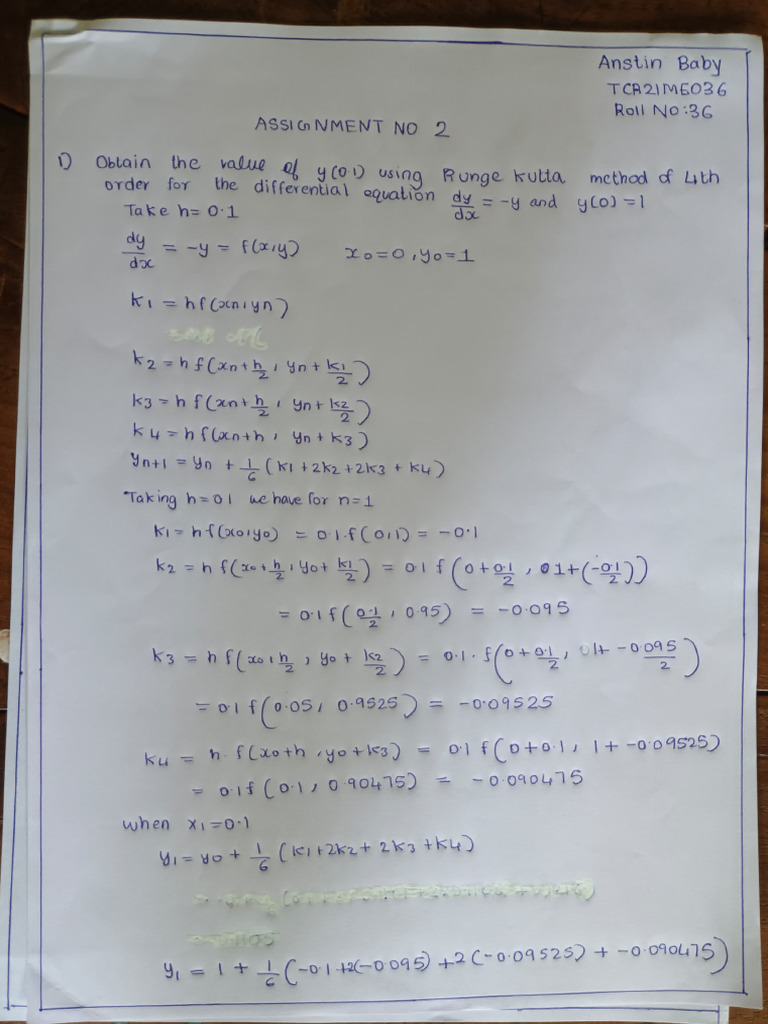 Anstin Baby
TCR21ME036
Roll No:36
ASSIGNMENT NO 2
1) Obtain the value of y(0.1) using Runge Kutta method of 4th
order for the differential equation dy/dx = -y and y(0) = 1
Take h= 0.1
dy/dx = -y = f(x,y) x0=0, y0=1
k1 = hf(xn,yn)
k2 = hf(xn+h/2, yn+k1/2)
k3 = hf(xn+h/2, yn+k2/2)
k4 = hf(xn+h, yn+k3)
yn+1 = yn + 1/6 (k1+2k2+2k3+k4)
Taking h=0.1 we have for n=1
k1 = hf(x0,y0) = 0.1.f(0,1) = -0.1
k2 = hf(x0+h/2, y0+k1/2) = 0.1 f(0+0.1/2, 01+(-0.1/2))
= 0.1f(0.1/2, 0.95) = -0.095
k3 = hf(x0,h/2, y0+k2/2) = 0.1.f(0+0.1/2, 1+ -0.095/2)
= 0.1f(0.05, 0.9525) = -0.09525
k4 = h.f(x0+h, y0+k3) = 0.1 f(0+0.1, 1+ -0.09525)
= 0.1f(0.1, 0.90475) = -0.090475
when x1=0.1
y1 = y0 + 1/6 (k1+2k2+2k3+k4)
y1 = 1 + 1/6 (-0.1+2(-0.095)+2(-0.09525) + -0.090475)